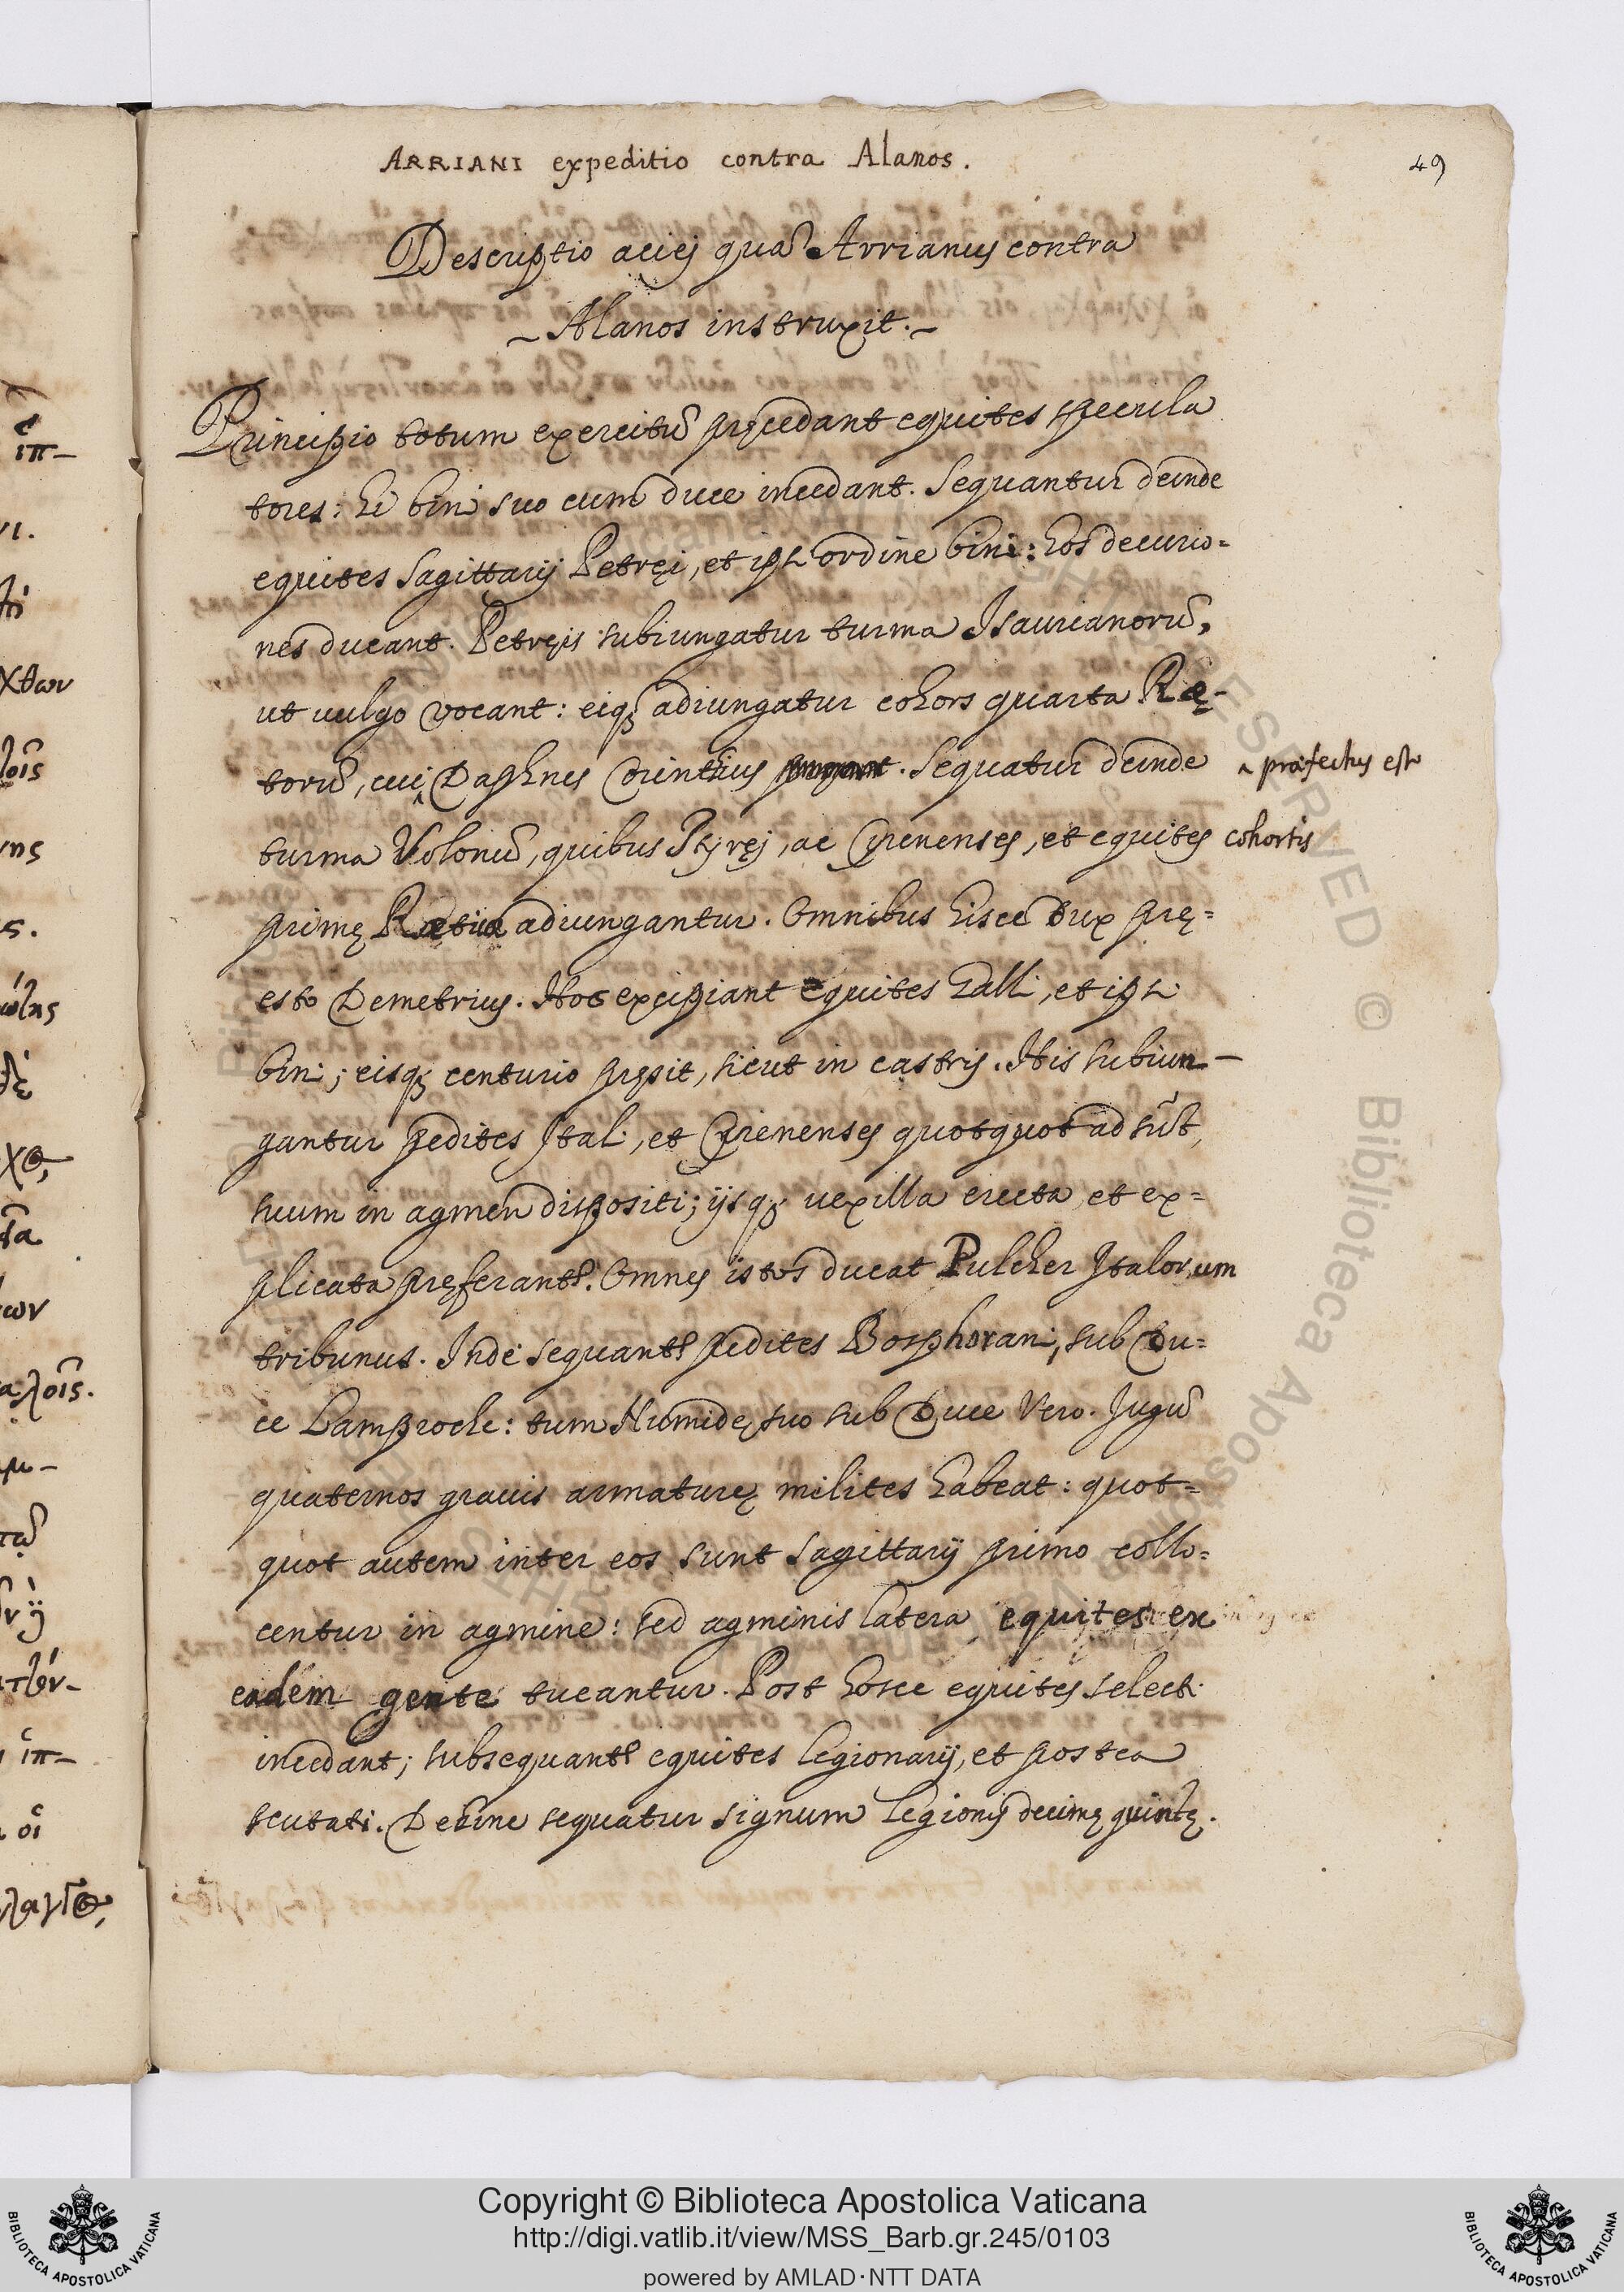 ARRIANI expeditio contra Alanos.
49
Descriptio aciej quã Arrianus contra
~ Alanos instruxit. ~
Principio totum exercitũ pręcedant equites specula
tores: hi bini suo cum duce incedant. Sequantur deinde
equites Sagittarij Petręi, et ipsi ordine bini: hos decurio=
nes ducant. Petręis subiungatur turma Isaurianorũ,
ut vulgo vocant: eiq; adiungatur cohors quarta Rœ-
torũ, cui Daphnes Corinthius . Sequatur deinde
^ præfectus est
turma Volonũ, quibus Ityręj, ac Cyrenenses, et equites cohortis
primę Rætiæ adiungantur. Omnibus hisce Dux prę=
esto Demetrius. Hos excipiant Equites Galli, et ipsi
bini; eisq; centurio pręsit, sicut in castris. His subiun-
gantur pedites Itali, et Cyrenenses quotquot adsũt,
suum in agmen dispositi; ijsq; vexilla erecta, et ex=
plicata pręferant.r Omnes istos ducat Pulcher Italorum
tribunus. Inde sequant.r pedites Bosphorani, sub Du=
ce Lamprocle: tum Numidę suo sub Duce Vero. Jugũ
quaternos gravis armaturę milites habeat: quot=
quot autem inter eos sunt sagittarij primo collo=
centur in agmine: sed agminis latera equites ex
eadem gente tueantur. Post hosce equites selecti
incedant; subsequant.r equites legionarij, et postea
scutati. Dehinc sequatur signum Legionis decimę quintę.
ἱπ-
χθων
λοῖς
ων
αλοῖς.
μ-
ἱπ-
οἱ
Copyright © Biblioteca Apostolica Vaticana
http://digi.vatlib.it/view/MSS_Barb.gr.245/0103
powered by AMLAD·NTT DATA
BIBLIOTECA APOSTOLICA VATICANA
BIBLIOTECA APOSTOLICA VATICANA